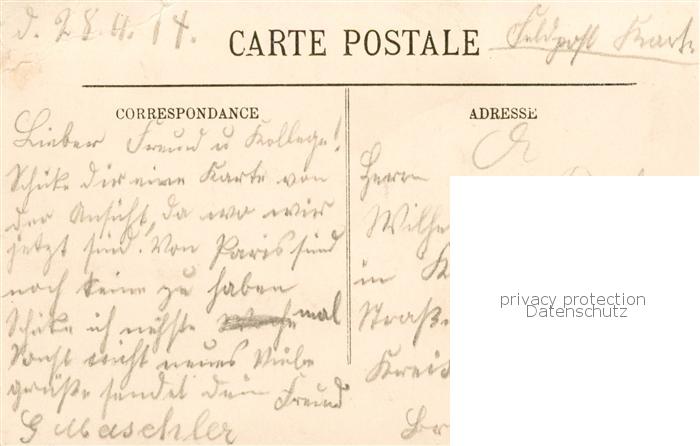 d. 28.11.14.
CARTE POSTALE
Feldpost Karte
CORRESPONDANCE
Lieber Freund u Kollege!
Schike dir eine Karte von
der Ansicht, da wo wir
jetzt sind. Von Paris sind
noch keine zu haben
Schike ich nehste mal
Sonst nicht neues Viele
grüße sendet dein Freund
G Maschler
ADRESSE
Herrn
Wilhe
in K
Straß
Kreis
Br
privacy protection
Datenschutz